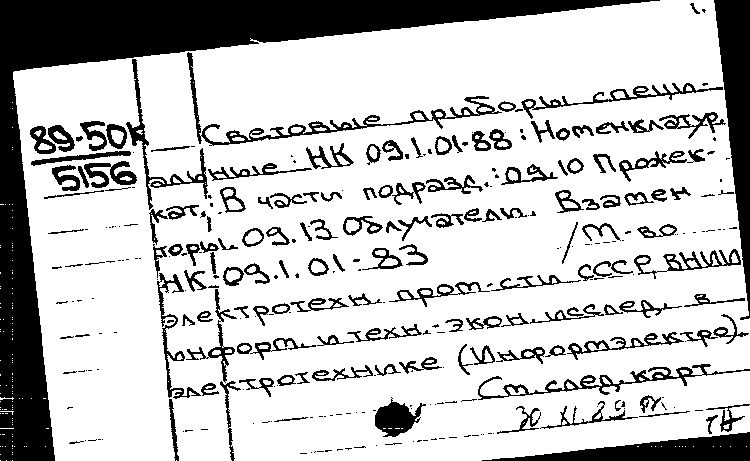 1.
89-50к
5156
Световые приборы специ-
альные : НК 09.1.01-88 : Номенклатур.
кат. : В части подразд. : 09.10 Прожек-
торы. 09.13 Облучатели. Взамен
НК 09.1.01-83 / М-во
электротехн. пром-сти СССР, ВНИИ
информ. и техн.-экон. исслед. в
электротехнике (Информэлектро).-
См. след. карт.
30 XI.89